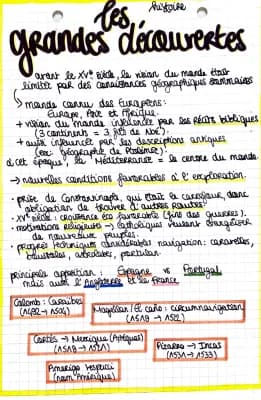 histoire
les
grandes découvertes
avant le XVe siècle, la vision du monde était
limitée par des connaissances géographiques sommaires
↳ monde connu des Européens :
Europe, Asie et Afrique.
+ vision du monde influencée par les récits bibliques
(3 continents = 3 fils de Noé).
+ aussi influencée par les descriptions antiques
(ex : géographie de Ptolémée).
à cet époque, la Méditerranée = le centre du monde.
→ nouvelles conditions favorables à l'exploration.
• prise de Constantinople, qui était le carrefour, donc
obligation de trouver d'autres routes.
• XVe siècle : croissance éco favorable (fins des guerres).
• motivations religieuses → Catholiques veulent évangéliser
de nouveaux peuples.
• progrès techniques considérables navigation : caravelles,
boussoles, astrolabes, portulan.
principale opposition : Espagne vs Portugal
mais aussi l'Angleterre et la France
Colomb : Caraïbes
(1492 → 1504)
Magellan/El Cano : circumnavigation
(1519 → 1522)
Cortés → Mexique (Aztèques)
(1519 → 1521)
Pizarro → Incas
(1531 → 1533)
Amerigo Vespucci
(nom Amérique)